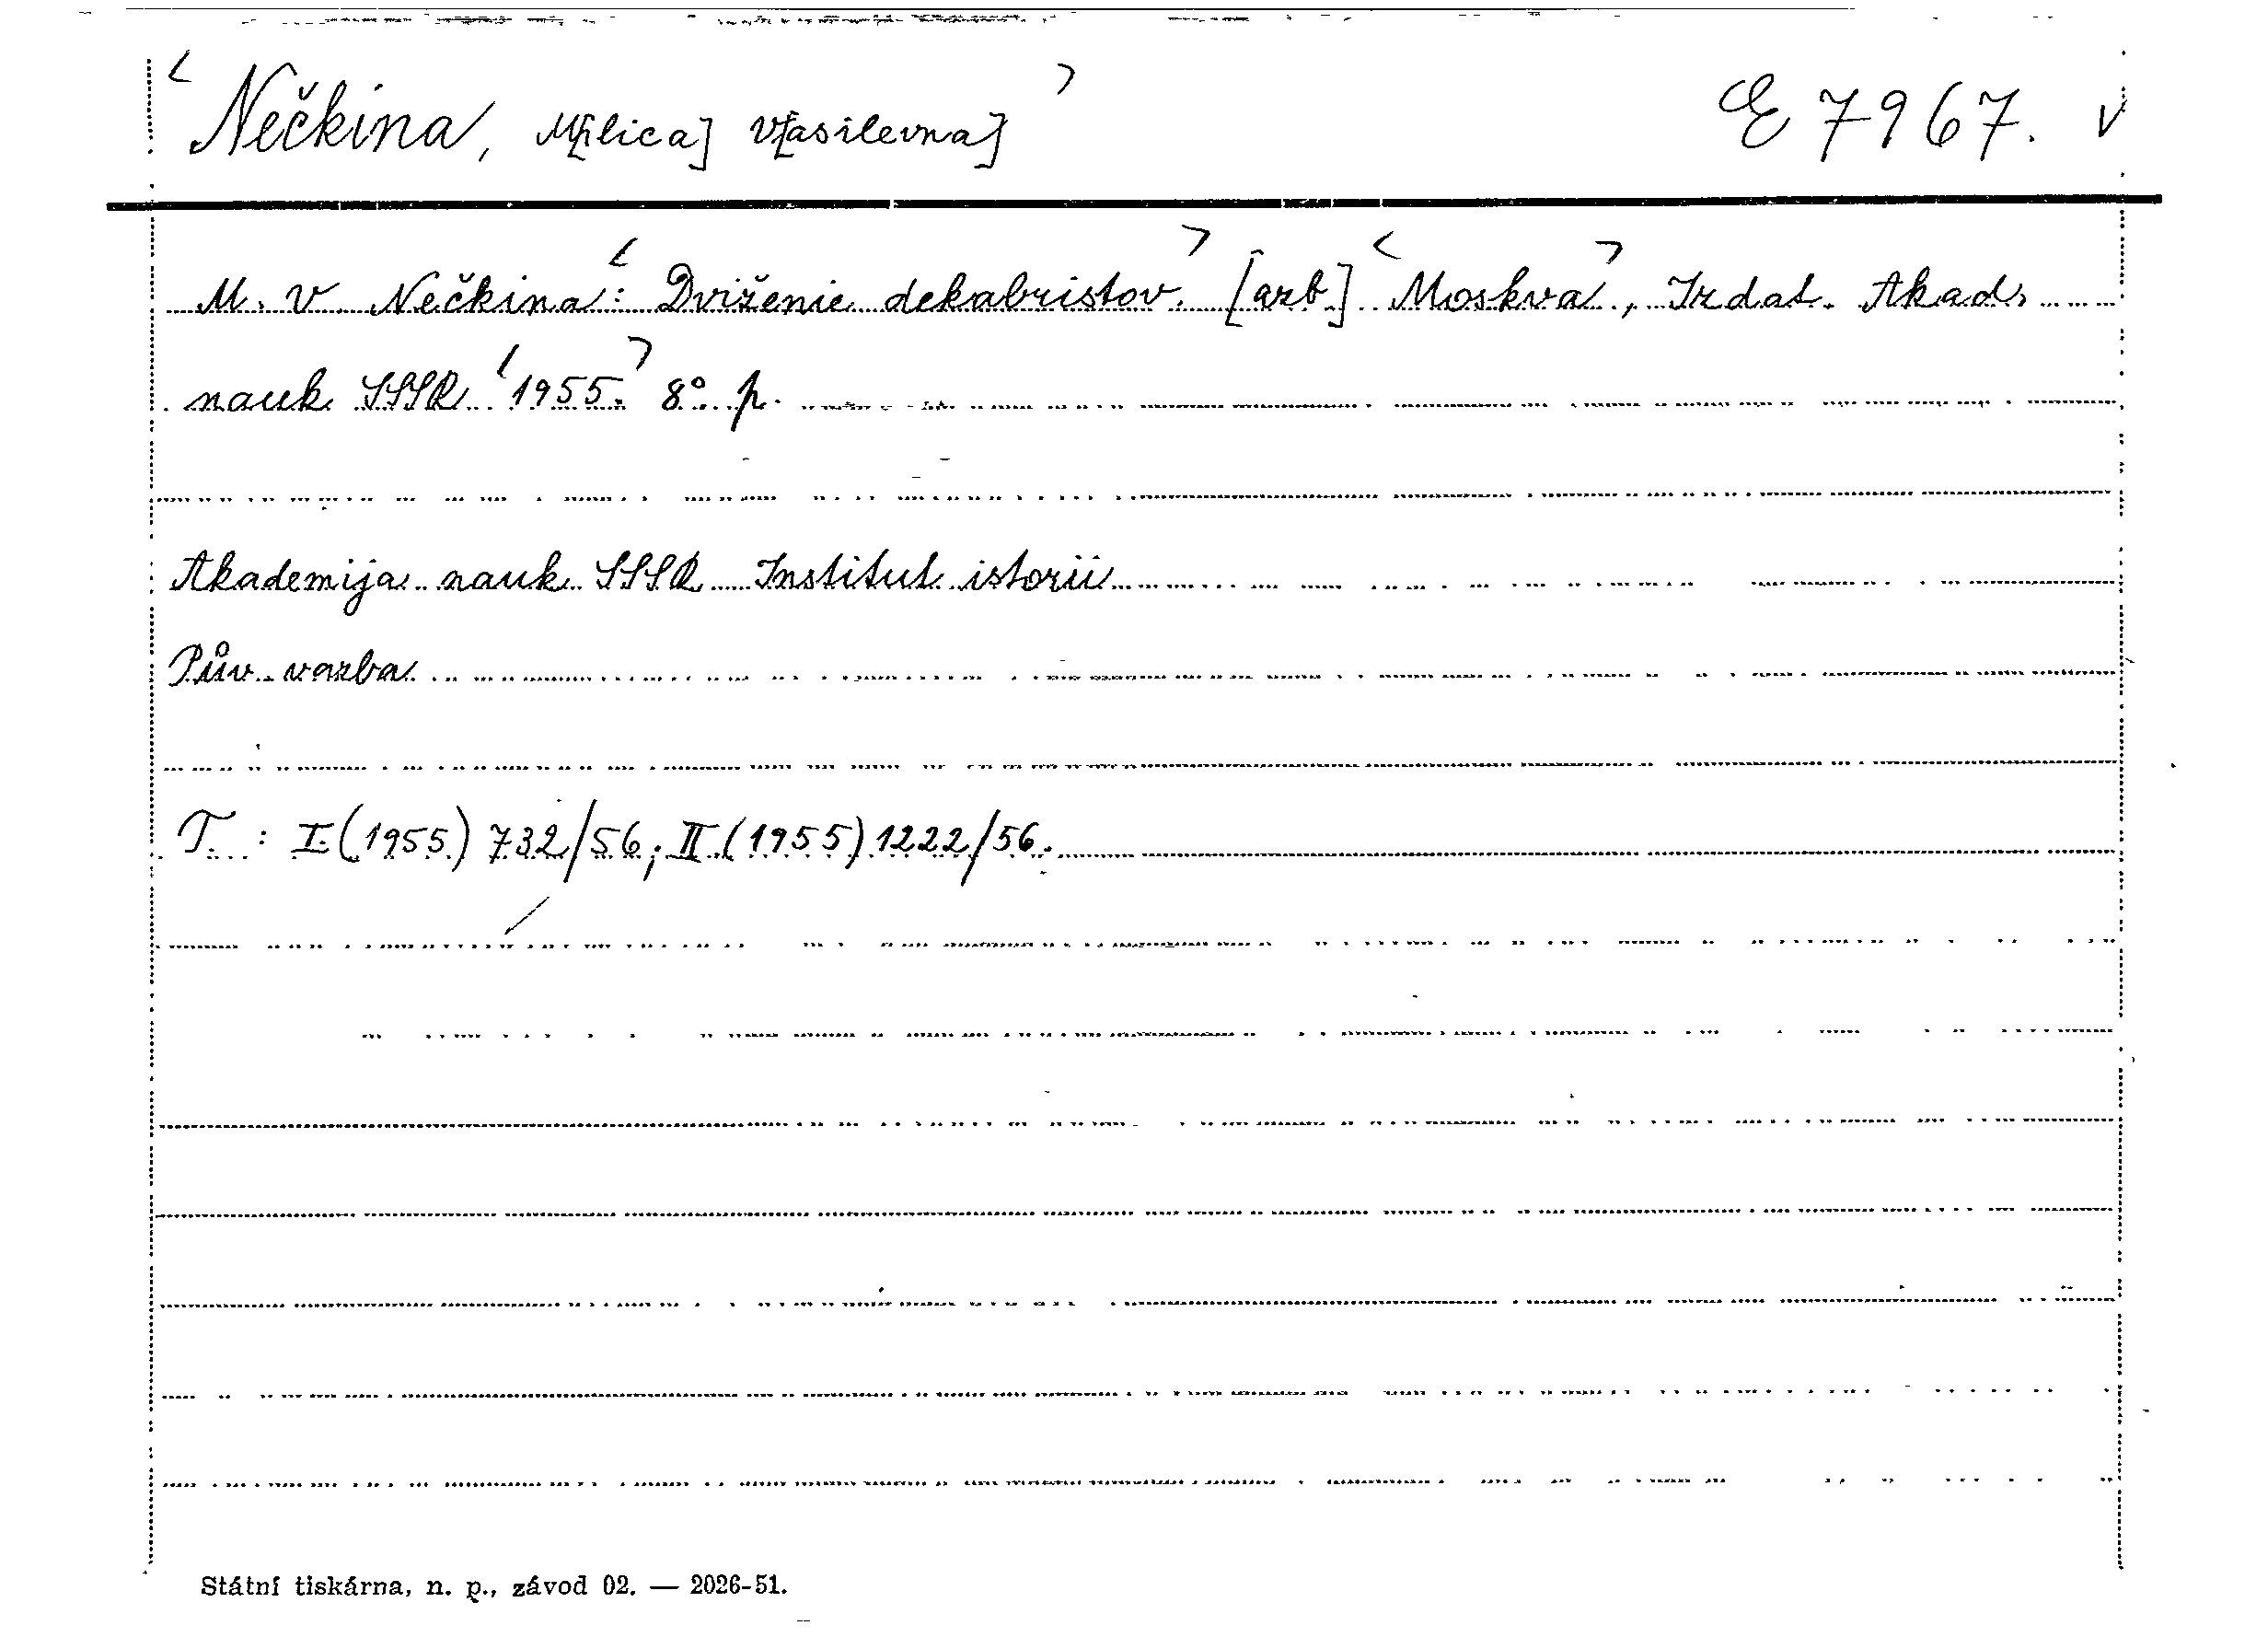 < Nečkina, M[ilica] V[asilevna] > E 7967. v
M. V. Nečkina: < Dviženie dekabristov. > [azb] < Moskva >, Izdat. Akad.
nauk SSSR < 1955. > 8° p.
Akademija nauk SSSR Institut istorii
Pův. vazba
T. : I (1955) 732/56; II (1955) 1222/56.
Státní tiskárna, n. p., závod 02. — 2026-51.